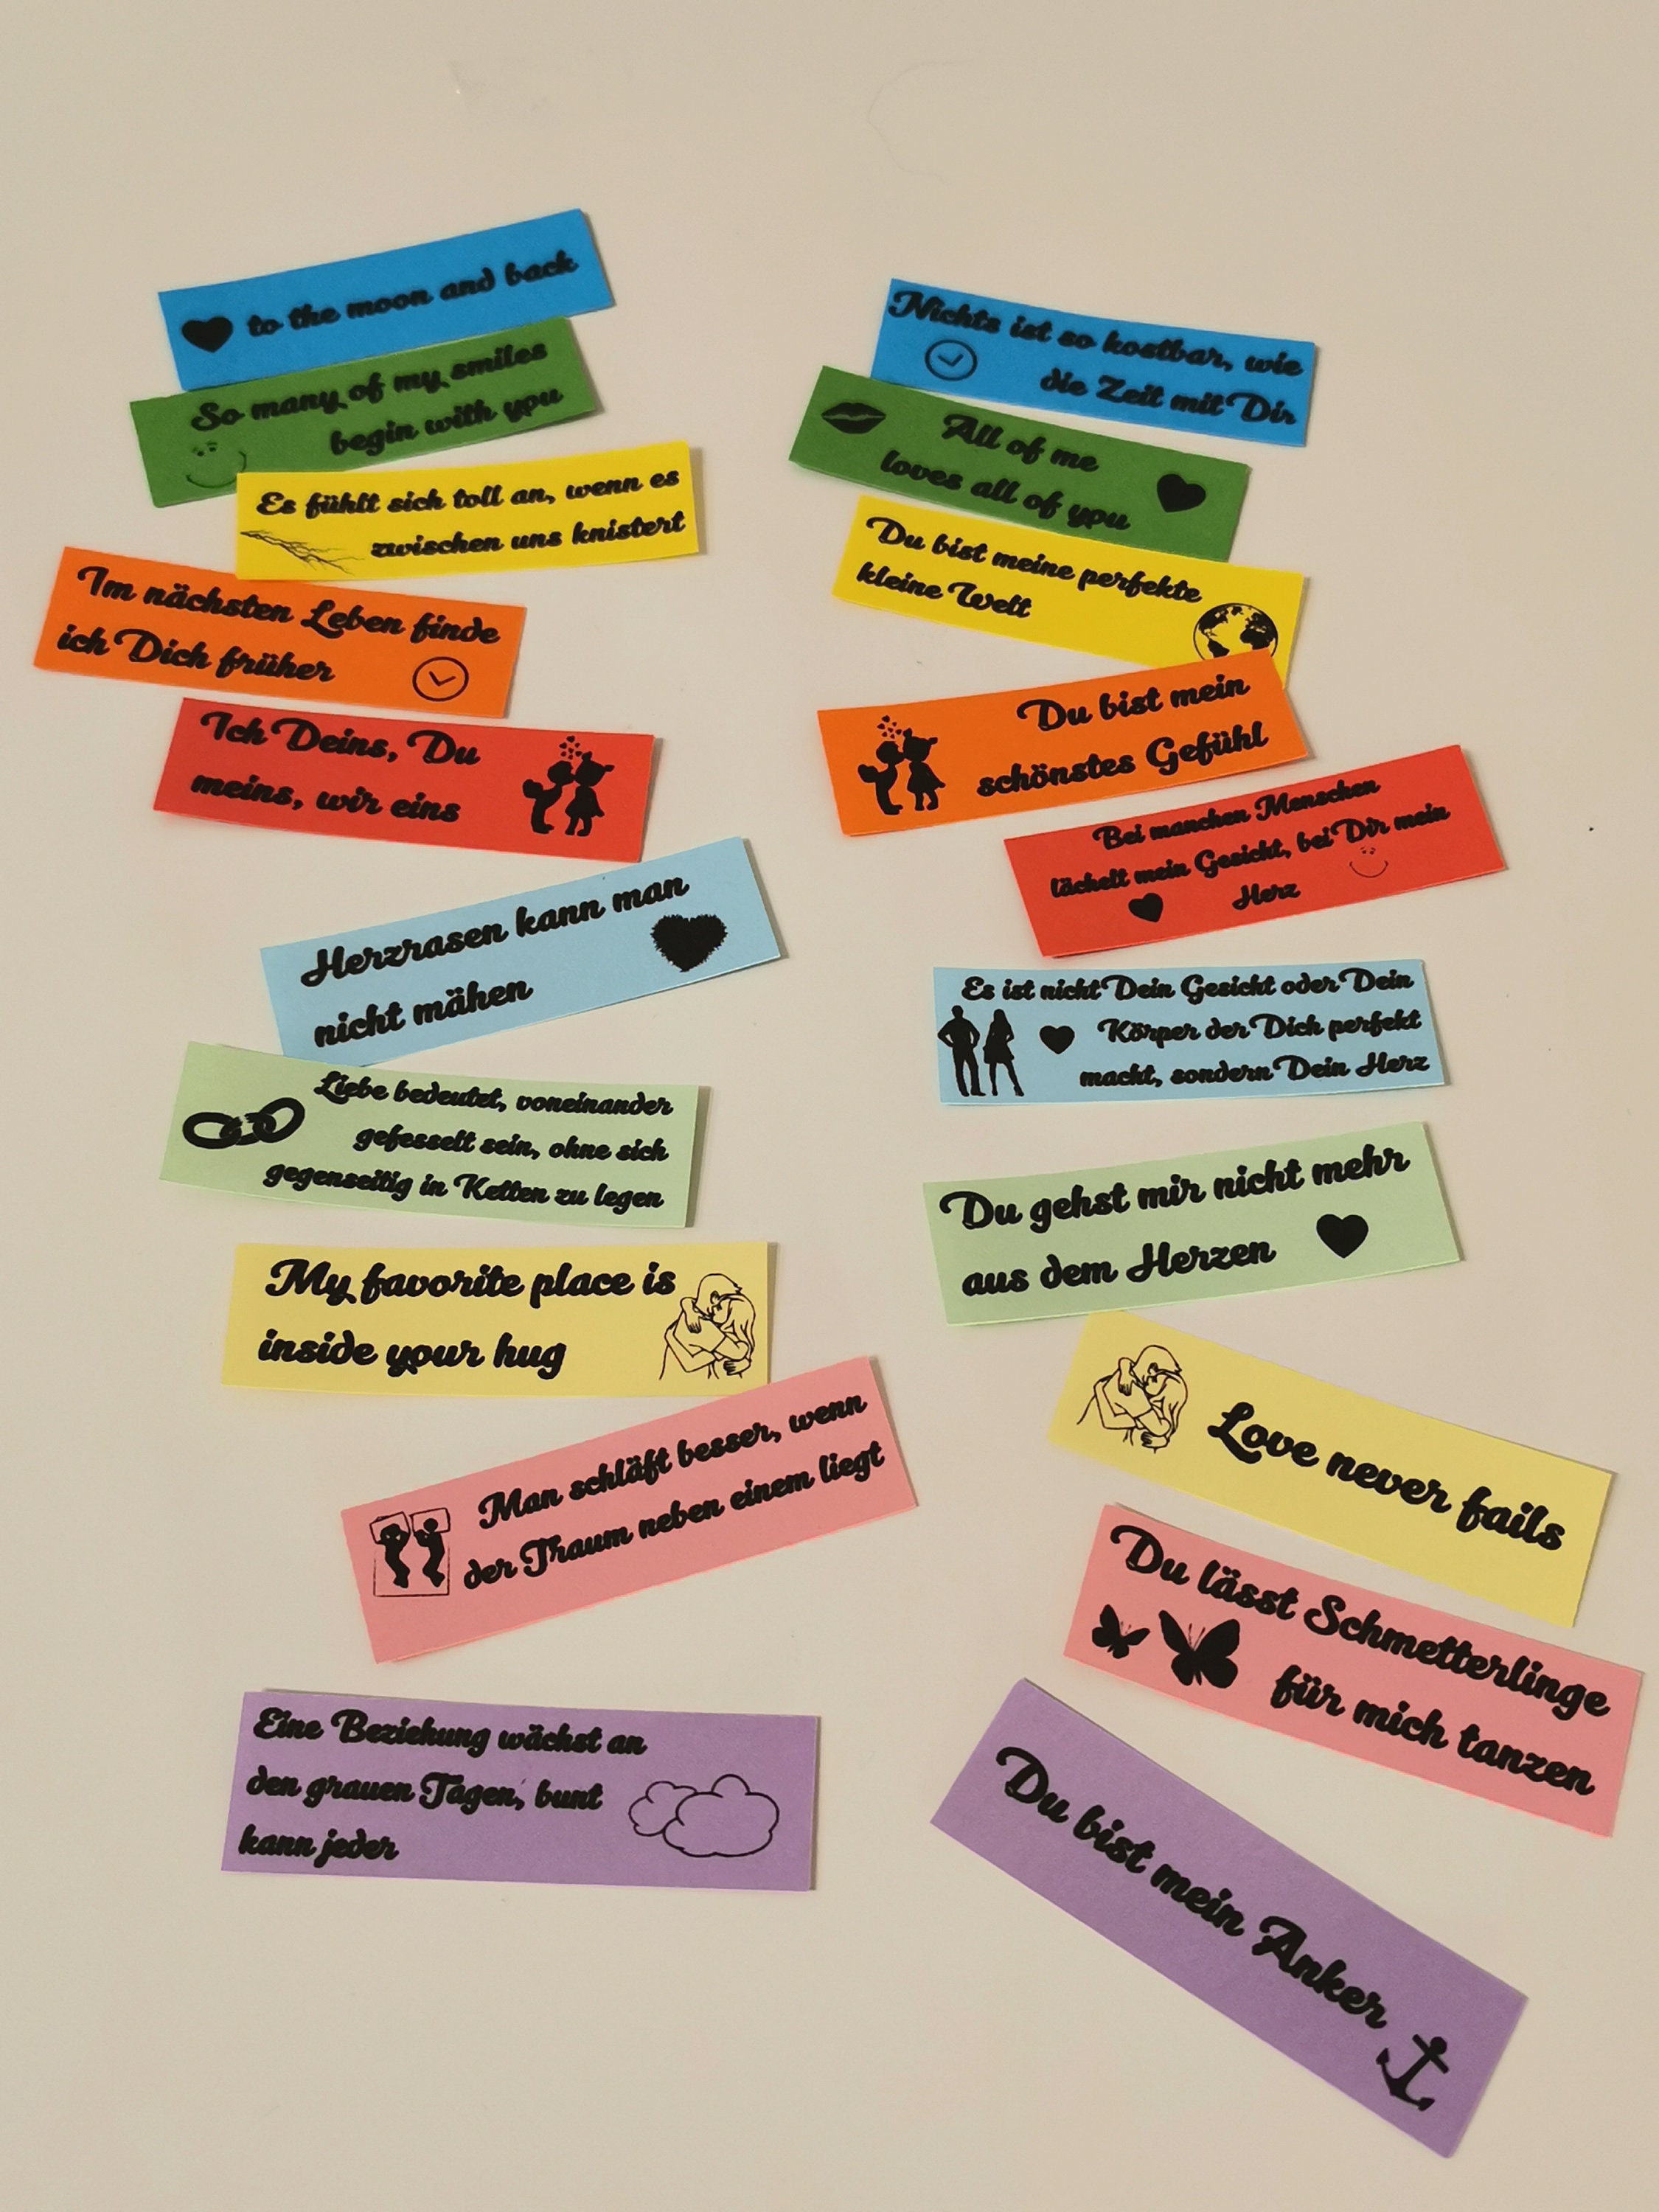 to the moon and back
So many of my smiles
begin with you
Es fühlt sich toll an, wenn es
zwischen uns knistert
Im nächsten Leben finde
ich Dich früher
Ich Deins, Du
meins, wir eins
Herzrasen kann man
nicht mähen
Liebe bedeutet, voneinander
gefesselt sein, ohne sich
gegenseitig in Ketten zu legen
My favorite place is
inside your hug
Man schläft besser, wenn
der Traum neben einem liegt
Eine Beziehung wächst an
den grauen Tagen, bunt
kann jeder
Nichts ist so kostbar, wie
die Zeit mit Dir
All of me
loves all of you
Du bist meine perfekte
kleine Welt
Du bist mein
schönstes Gefühl
Bei manchen Menschen
lächelt mein Gesicht, bei Dir mein
Herz
Es ist nicht Dein Gesicht oder Dein
Körper der Dich perfekt
macht, sondern Dein Herz
Du gehst mir nicht mehr
aus dem Herzen
Love never fails
Du lässt Schmetterlinge
für mich tanzen
Du bist mein Anker